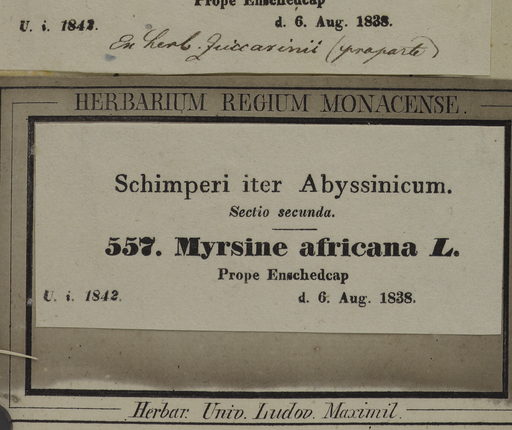 Prope Enschedcap
U. i. 1842. d. 6. Aug. 1838.
Ex herb. Zuccarinii (pro parte)
HERBARIUM REGIUM MONACENSE.
Schimperi iter Abyssinicum.
Sectio secunda.
557. Myrsine africana L.
Prope Enschedcap
U. i. 1842. d. 6. Aug. 1838.
Herbar. Univ. Ludov. Maximil.